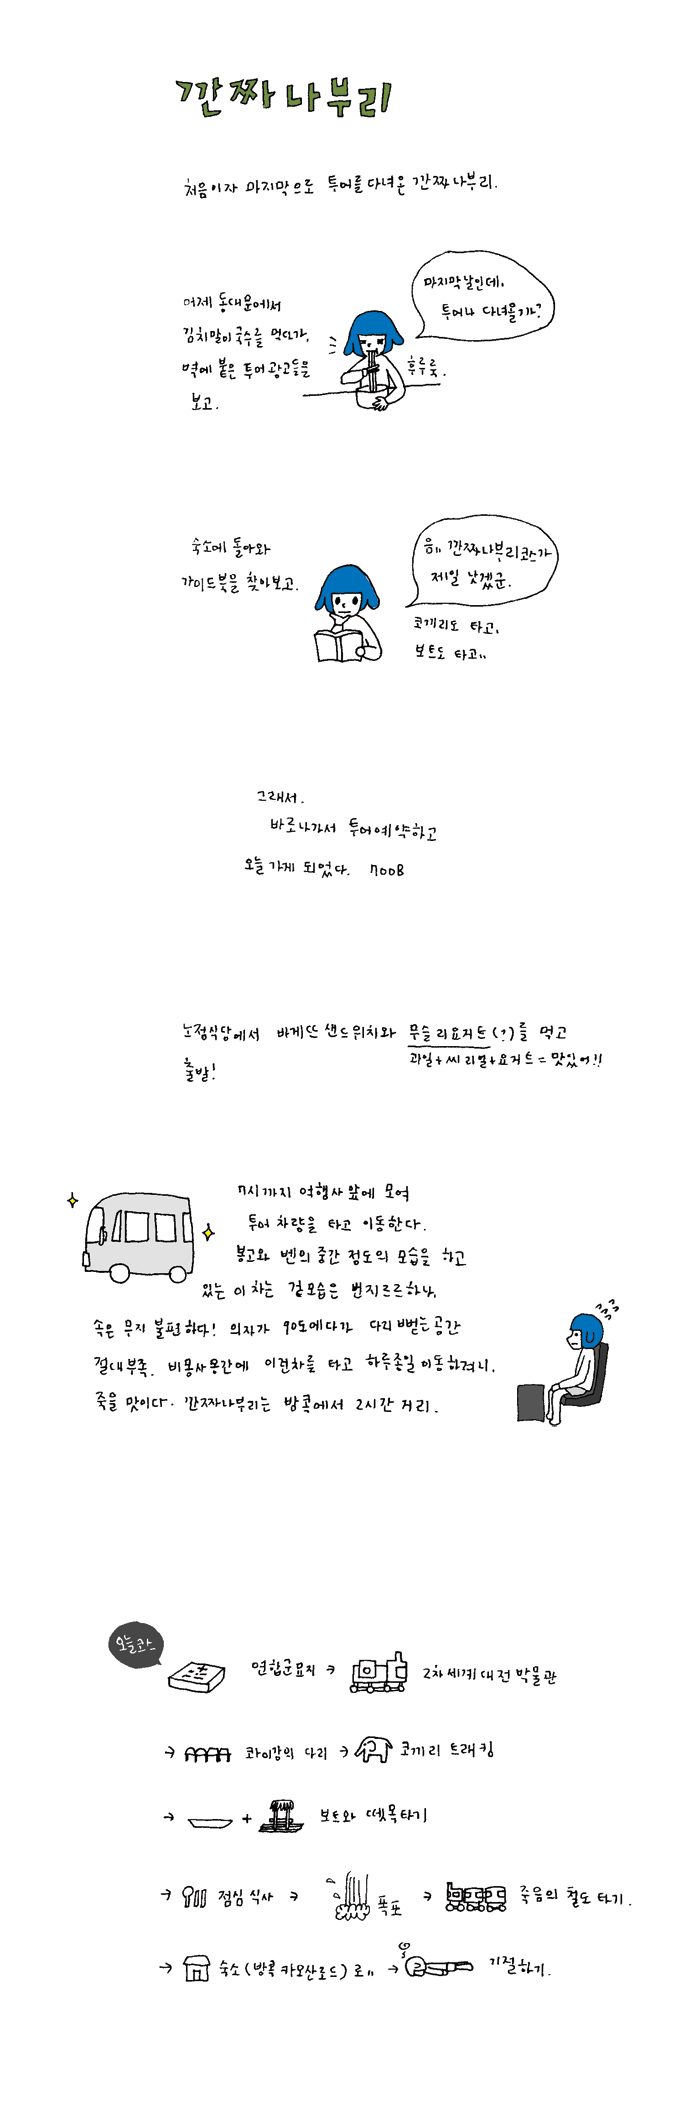 깐짜나부리
처음이자 마지막으로 투어를 다녀온 깐짜나부리.
어제 동대문에서
김치말이국수를 먹다가,
벽에 붙은 투어 광고들을
보고.
마지막날인데,
투어나 다녀올까?
후루룩.
숙소에 돌아와
가이드북을 찾아보고.
음.. 깐짜나부리코스가
제일 낫겠군.
코끼리도 타고,
보트도 타고..
그래서.
바로나가서 투어예약하고
오늘 가게 되었다. 700B
노점식당에서 바게뜨 샌드위치와 무슬리요거트(?)를 먹고
과일+씨리얼+요거트=맛있어!!
출발!
7시까지 여행사 앞에 모여
투어 차량을 타고 이동한다.
봉고와 벤의 중간 정도의 모습을 하고
있는 이 차는 겉모습은 번지르르하나,
속은 무지 불편하다! 의자가 90도에다가 다리 뻗는 공간
절대부족. 비몽사몽간에 이런차를 타고 하루종일 이동하려니,
죽을 맛이다. 깐짜나부리는 방콕에서 2시간 거리.
오늘코스
연합군묘지 → 2차 세계대전 박물관
→ 콰이강의 다리 → 코끼리 트래킹
→ + 보트와 뗏목타기
→ 점심 식사 → 폭포 → 죽음의 철도 타기.
→ 숙소 (방콕 카오산로드)로.. → 기절하기.